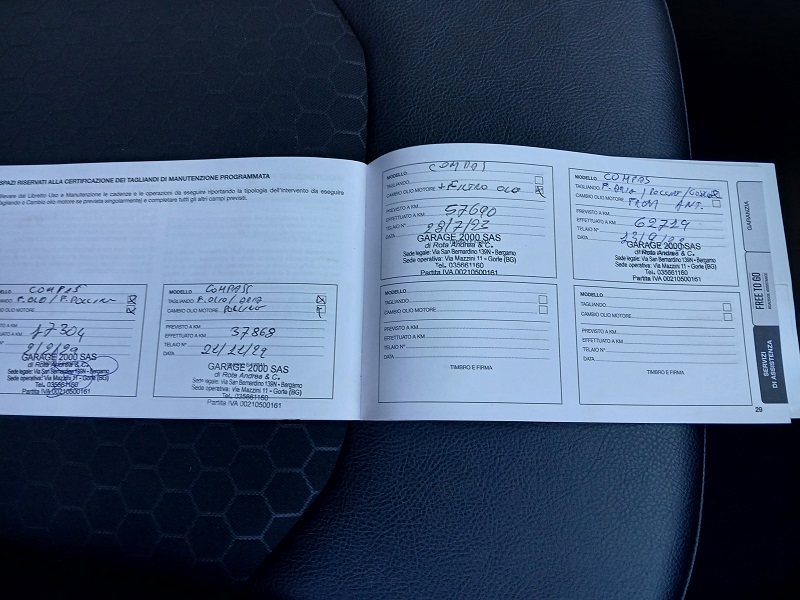 SPAZI RISERVATI ALLA CERTIFICAZIONE DEI TAGLIANDI DI MANUTENZIONE PROGRAMMATA
Rilevare dal Libretto Uso e Manutenzione le cadenze e le operazioni da eseguire riportando la tipologia dell'intervento da eseguire
(Tagliando o Cambio olio motore se prevista singolarmente) e completare tutti gli altri campi previsti.
COMPASS
F. OLIO / F. POLLINE
OLIO MOTORE
A KM
17304
A KM
GARAGE 2000 SAS
di Rota Andrea & C.
Sede legale: Via San Bernardino 139N - Bergamo
Sede operativa: Via Mazzini 11 - Gorle (BG)
TeL. 035661160
Partita IVA 00210500161
MODELLO COMPASS
TAGLIANDO F. OLIO / ARIA
CAMBIO OLIO MOTORE POLLINE
PREVISTO A KM
EFFETTUATO A KM 37868
TELAIO N°
DATA
GARAGE 2000 SAS
di Rota Andrea & C.
Sede legale: Via San Bernardino 139N - Bergamo
Sede operativa: Via Mazzini 11 - Gorle (BG)
TeL. 035661160
Partita IVA 00210500161
MODELLO COMPASS
TAGLIANDO
CAMBIO OLIO MOTORE + FILTRO OLIO
PREVISTO A KM
EFFETTUATO A KM 57690
TELAIO N°
DATA
GARAGE 2000 SAS
di Rota Andrea & C.
Sede legale: Via San Bernardino 139N - Bergamo
Sede operativa: Via Mazzini 11 - Gorle (BG)
TeL. 035661160
Partita IVA 00210500161
MODELLO COMPASS
TAGLIANDO F. ARIA / POLLINE /
CAMBIO OLIO MOTORE ANT.
PREVISTO A KM
EFFETTUATO A KM
TELAIO N°
DATA
GARAGE 2000 SAS
di Rota Andrea & C.
Sede legale: Via San Bernardino 139N - Bergamo
Sede operativa: Via Mazzini 11 - Gorle (BG)
TeL. 035661160
Partita IVA 00210500161
MODELLO
TAGLIANDO
CAMBIO OLIO MOTORE
PREVISTO A KM
EFFETTUATO A KM
TELAIO N°
DATA
TIMBRO E FIRMA
MODELLO
TAGLIANDO
CAMBIO OLIO MOTORE
PREVISTO A KM
EFFETTUATO A KM
TELAIO N°
DATA
TIMBRO E FIRMA
GARANZIA
FREE TO GO
SERVIZI
DI ASSISTENZA
29